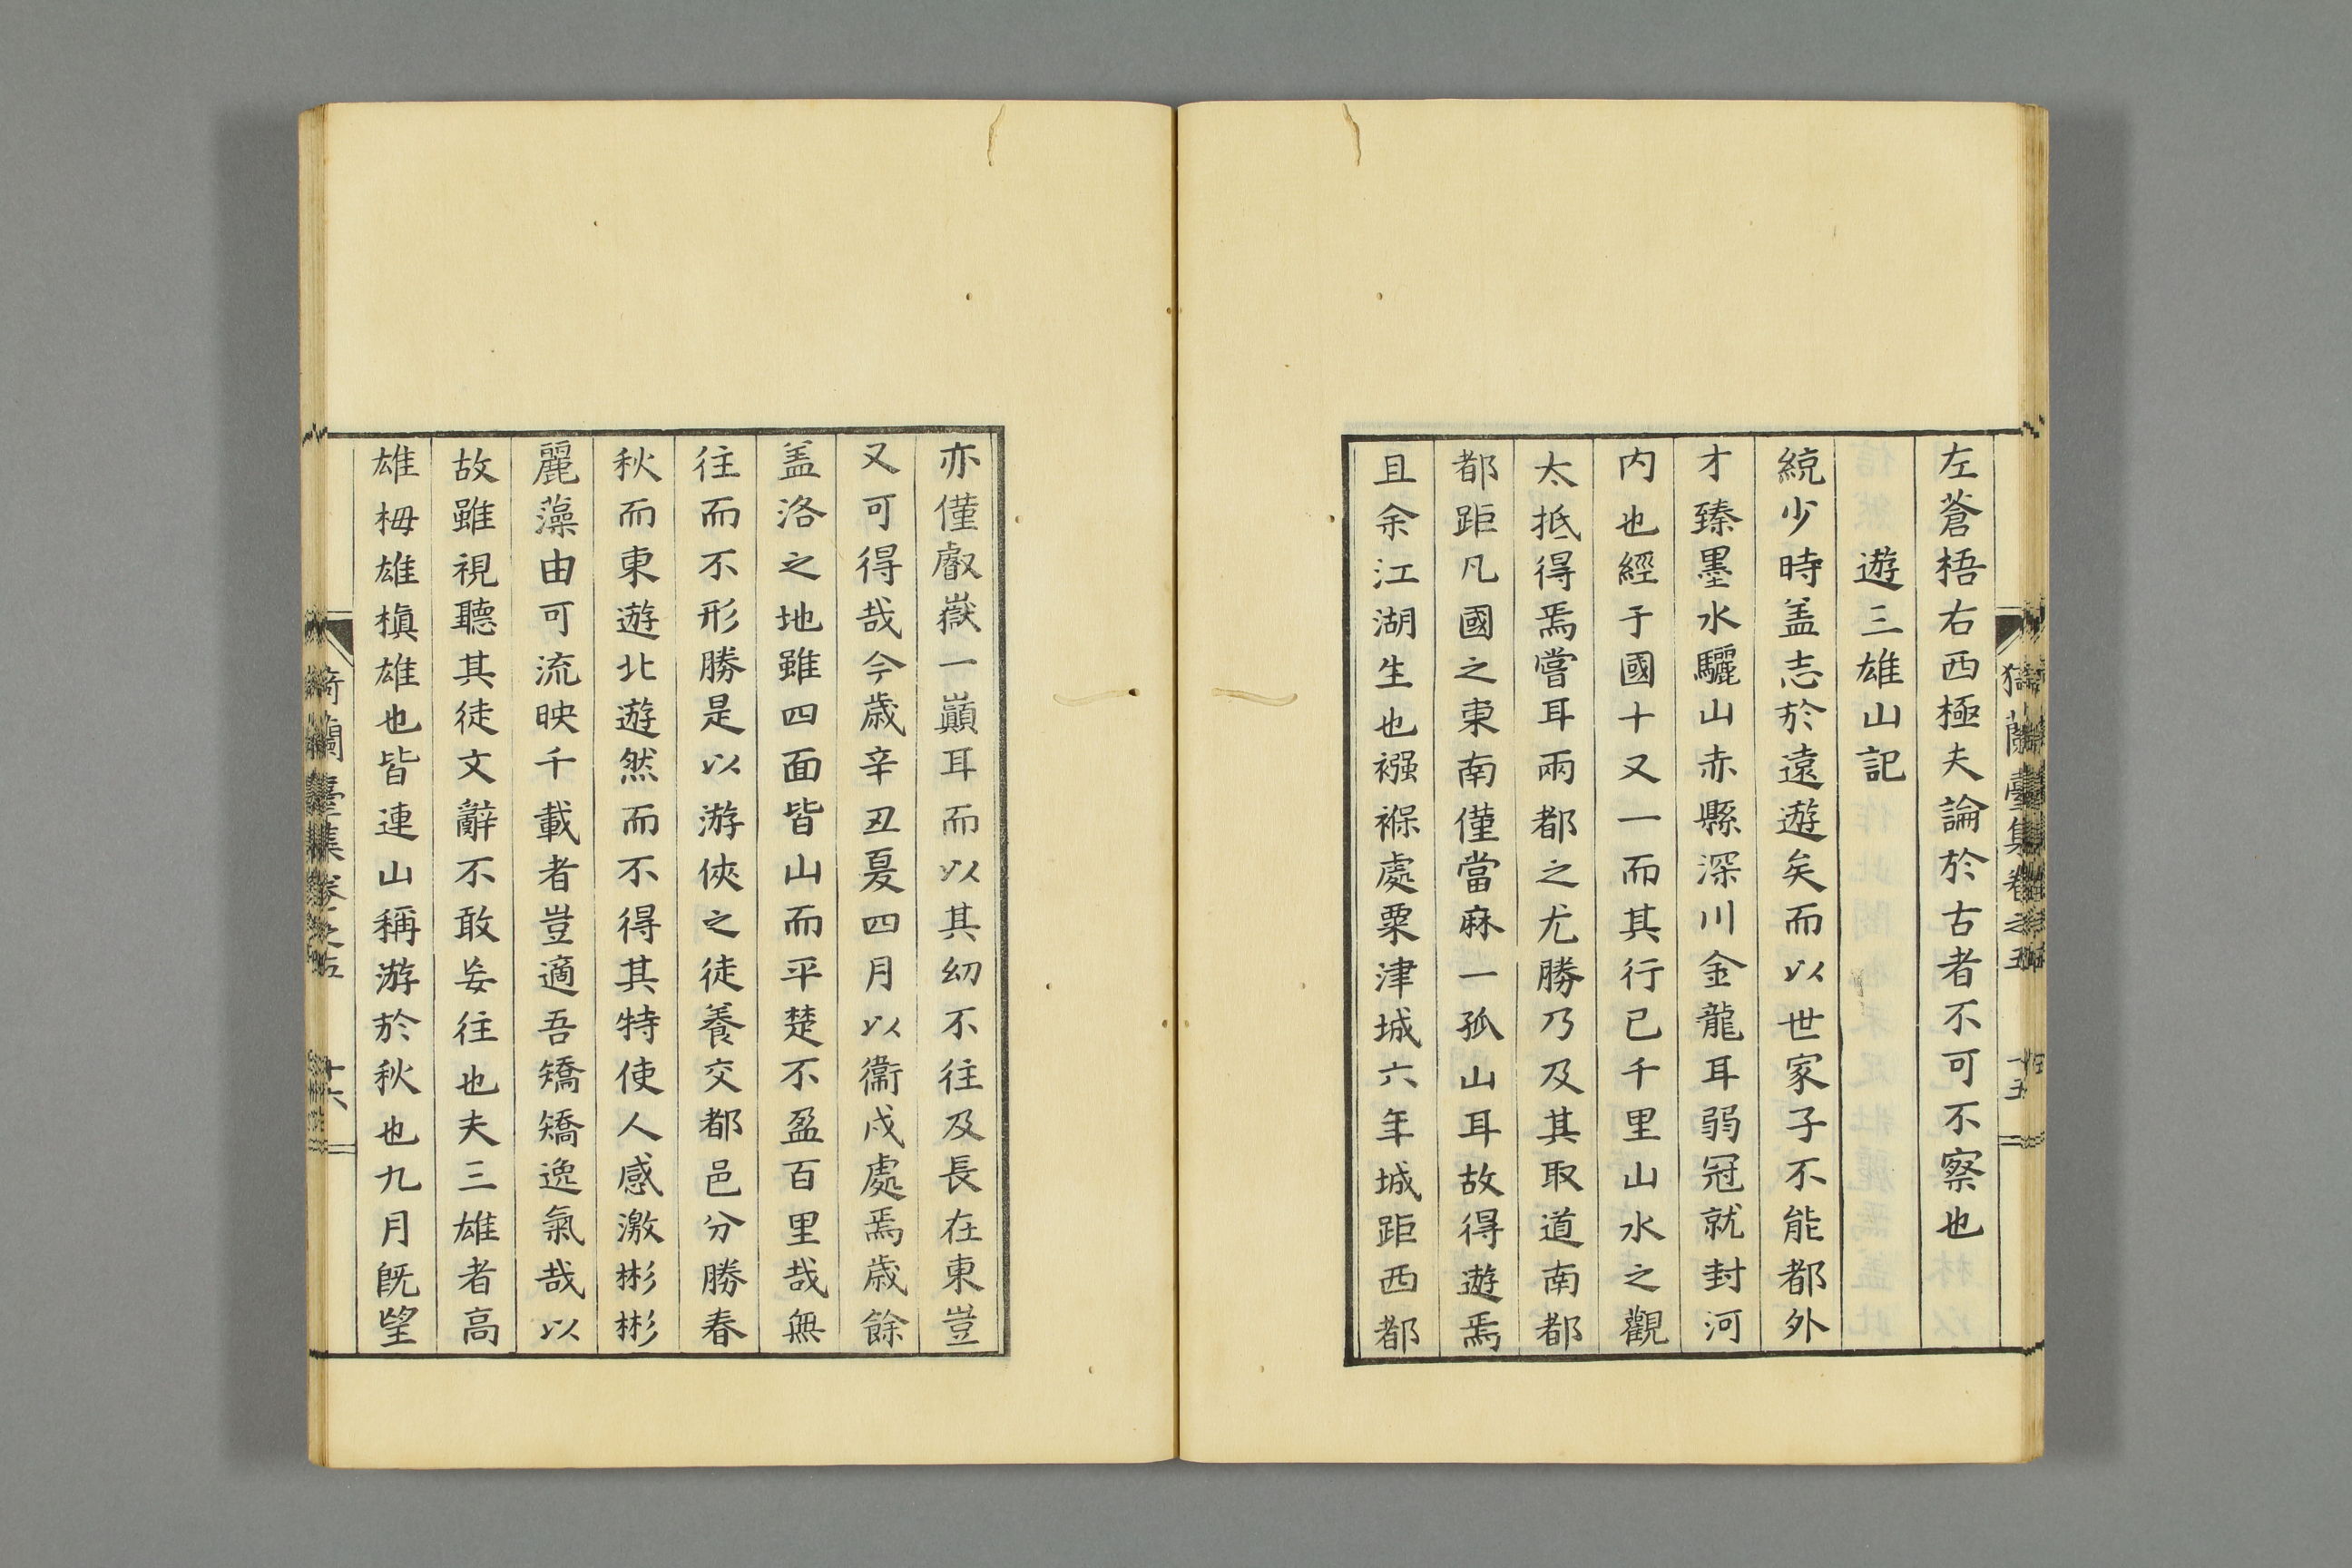 左蒼梧右西極夫論於古者不可不察也
遊三雄山記
綂少時盖志於遠遊矣而以世家子不能都外
才臻墨水驪山赤縣深川金龍耳弱冠就封河
内也經于國十又一而其行已千里山水之觀
太抵得焉嘗耳兩都之尤勝乃及其取道南都
都距凡國之東南僅當麻一孤山耳故得遊焉
且余江湖生也襁褓處粟津城六年城距西都
亦僅叡嶽一巔耳而以其幼不往及長在東豈
又可得哉今歳辛丑夏四月以衞戍處焉歳餘
盖洛之地雖四面皆山而平楚不盈百里哉無
往而不形勝是以游俠之徒養交都邑分勝春
秋而東遊北遊然而不得其特使人感激彬彬
麗藻由可流映千載者豈適吾矯矯逸氣哉以
故雖視聽其徒文辭不敢妄往也夫三雄者高
雄栂雄槇雄也皆連山稱游於秋也九月旣望
蘭臺集卷之五
十五
蘭臺集卷之五
十六